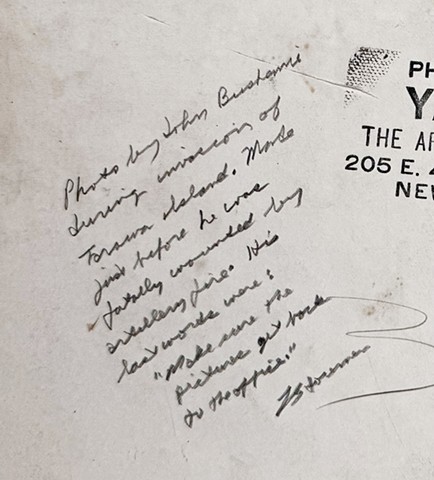 Photo by John Bushemi
during invasion of
Tarawa Island. Made
just before he was
fatally wounded by
artillery fire. His
last words were:
"Make sure the
pictures get back
to the office."
PH
YA
THE AR
205 E. 4
NEW